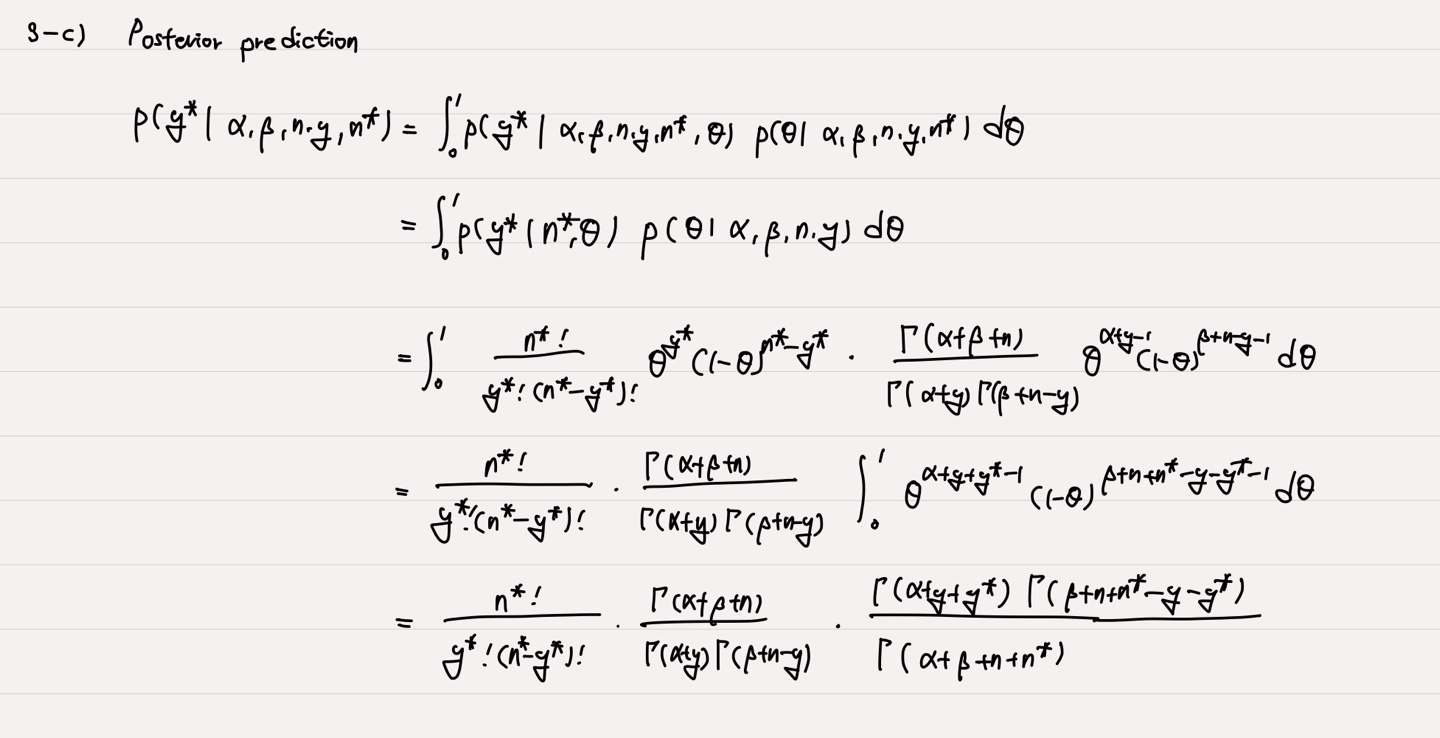 3-c) Posterior prediction
p(y*| α,β,n,y,n*) = ∫₀¹ p(y*| α,β,n,y,n*,θ) p(θ| α,β,n,y,n*) dθ
= ∫₀¹ p(y*|n*,θ) p(θ| α,β,n,y) dθ
= ∫₀¹ n*! / y*!(n*-y*)! θ^{y*} (1-θ)^{n*-y*} · Γ(α+β+n) / Γ(α+y)Γ(β+n-y) θ^{α+y-1} (1-θ)^{β+n-y-1} dθ
= n*! / y*!(n*-y*)! · Γ(α+β+n) / Γ(α+y)Γ(β+n-y) ∫₀¹ θ^{α+y+y*-1} (1-θ)^{β+n+n*-y-y*-1} dθ
= n*! / y*!(n*-y*)! · Γ(α+β+n) / Γ(α+y)Γ(β+n-y) · Γ(α+y+y*) Γ(β+n+n*-y-y*) / Γ(α+β+n+n*)